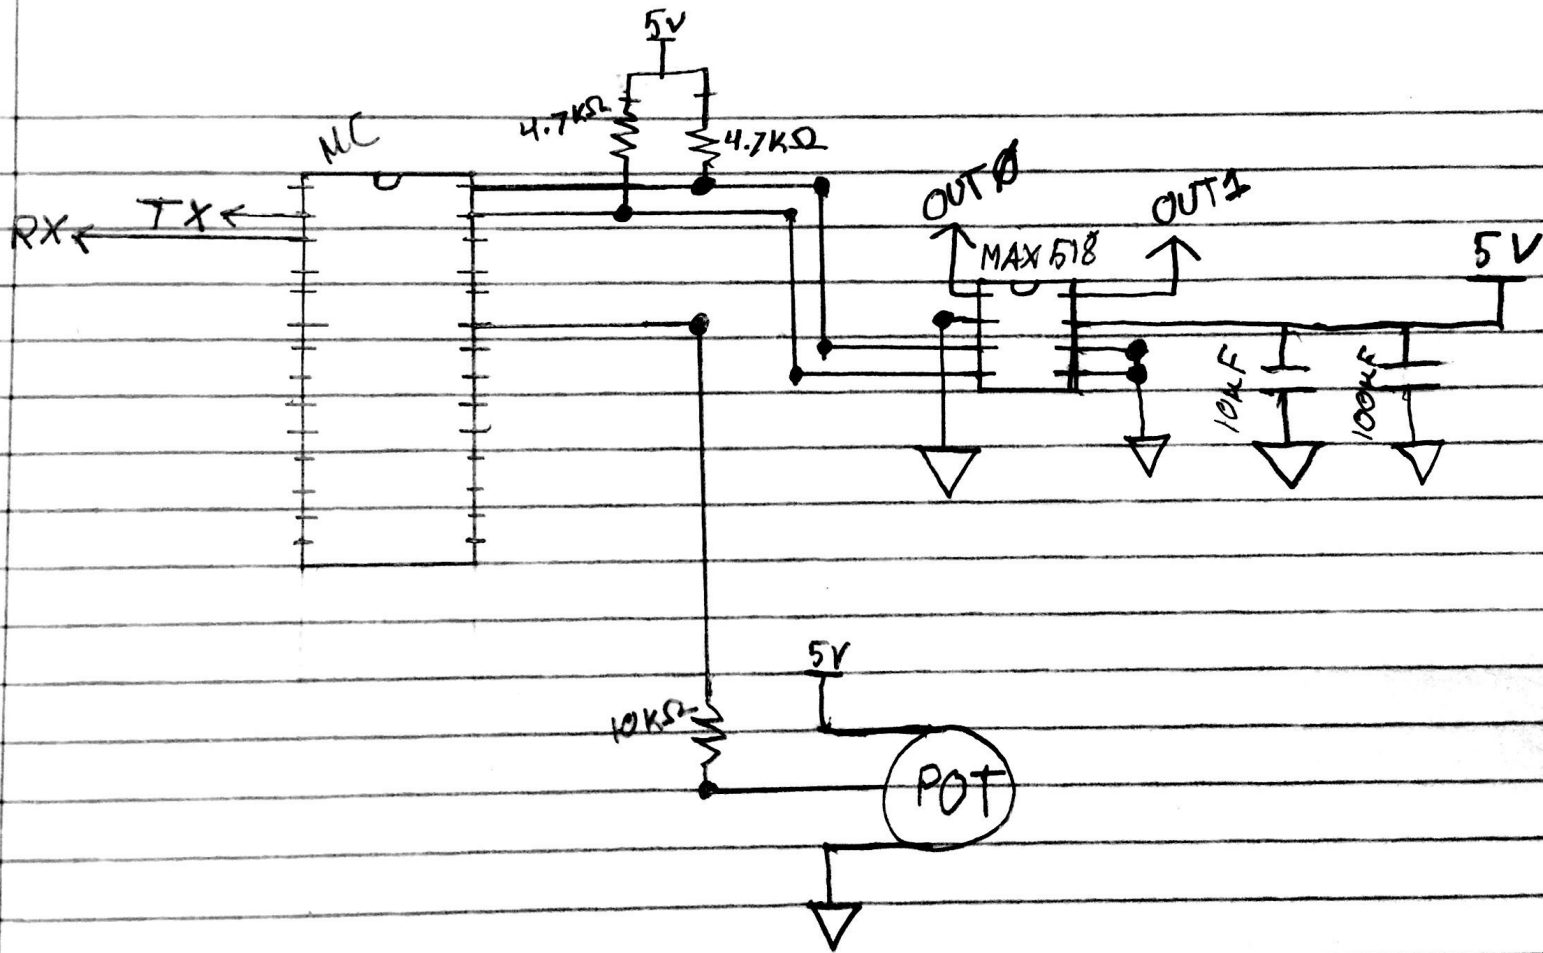 5V
4.7KΩ
4.7KΩ
MC
TX
RX
OUT0
OUT1
MAX518
5V
10µF
100µF
5V
10KΩ
POT